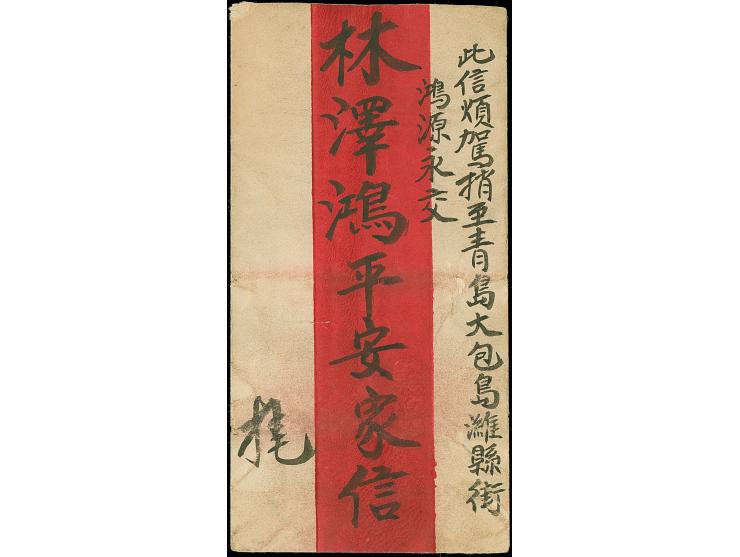 此信煩駕捎至青島大包島濰縣街
鴻源永交
林澤鴻平安家信